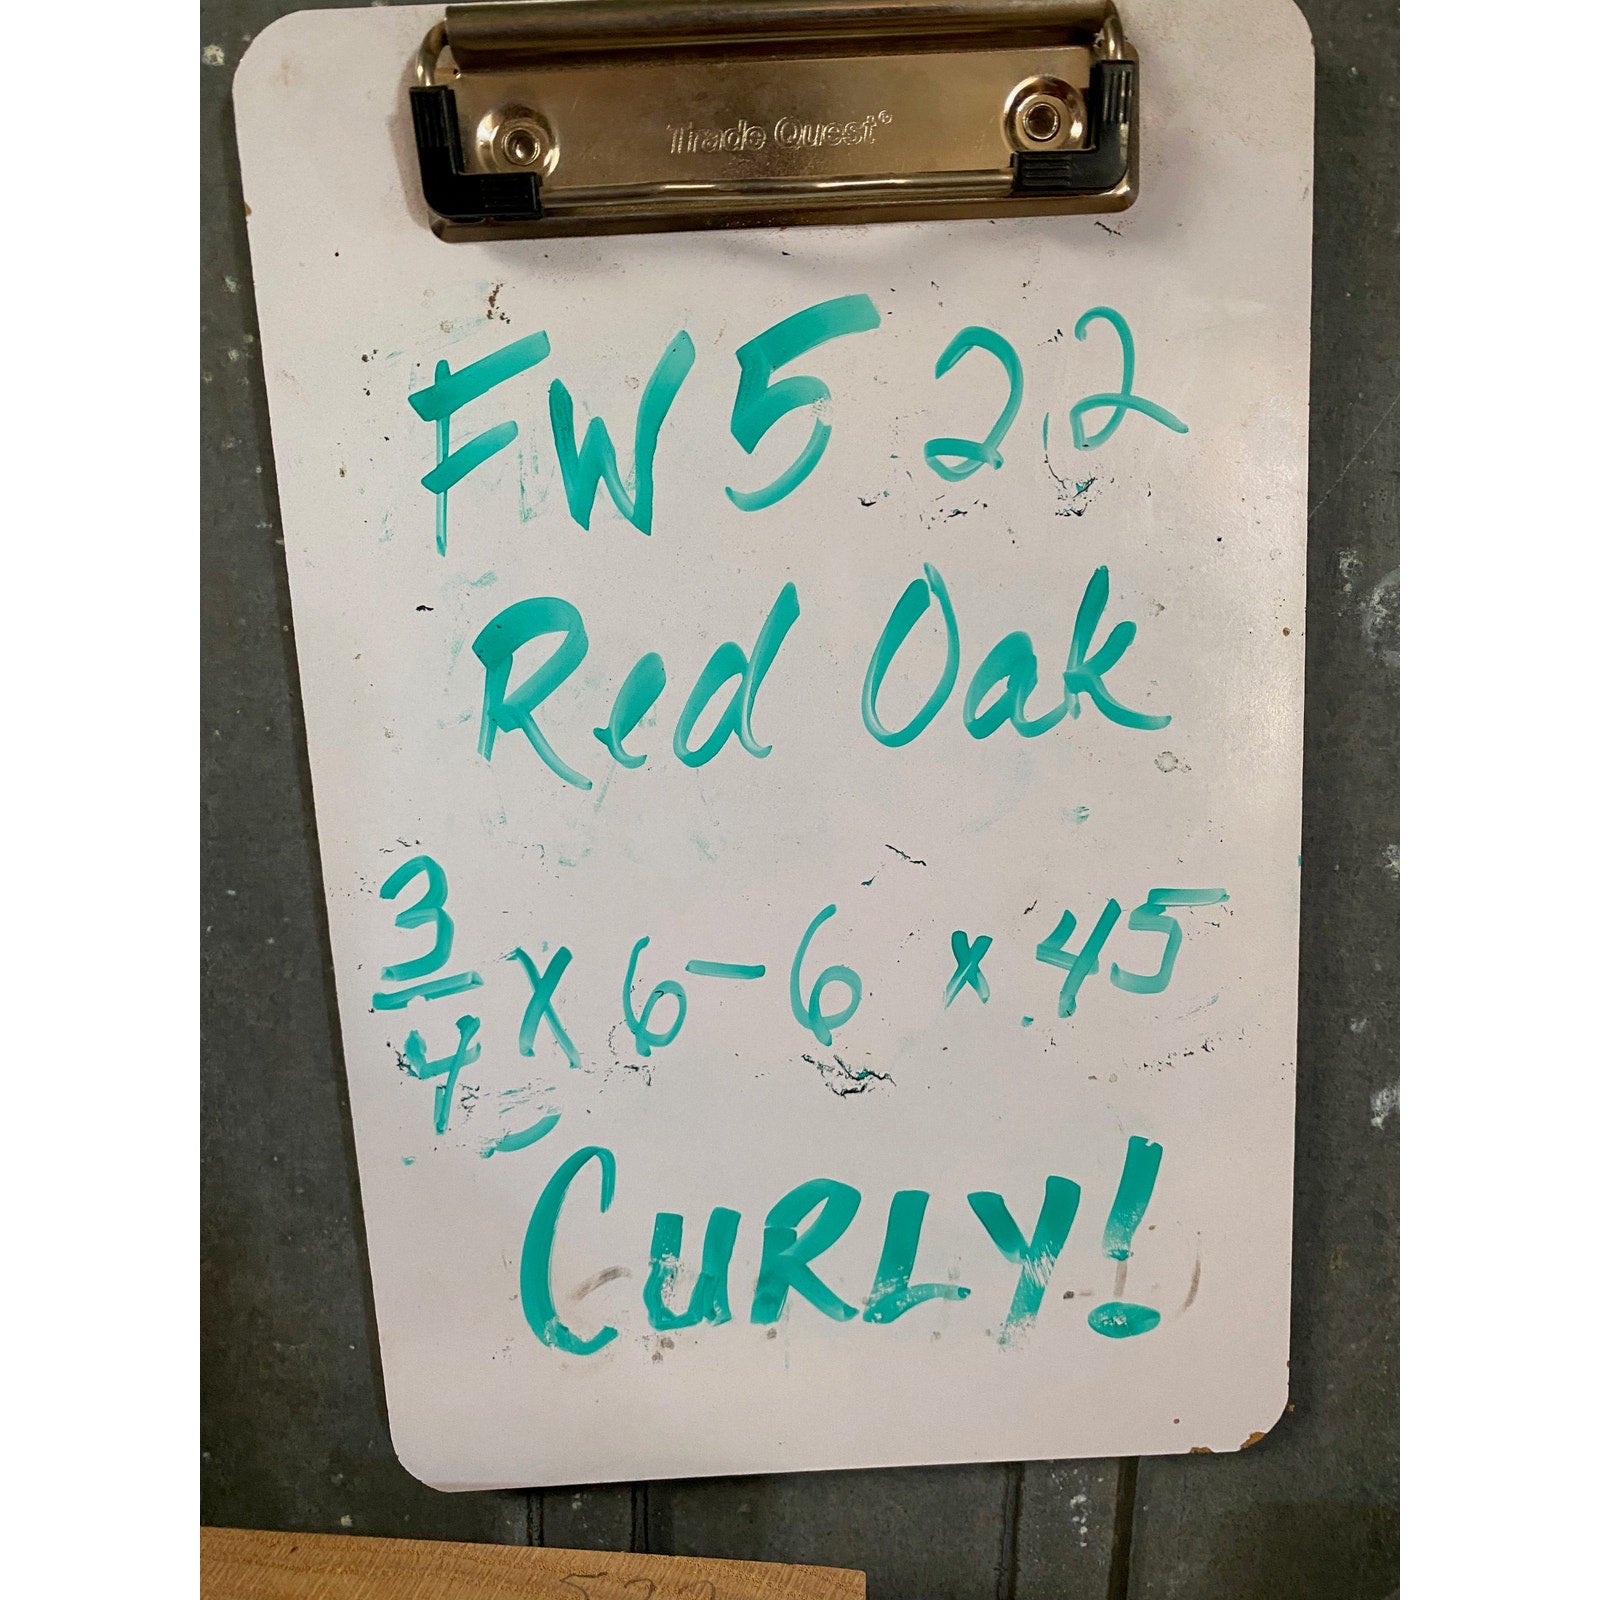 Trade Quest®
FW522
Red Oak
3/4 x 6-6 x 45
CURLY!
522